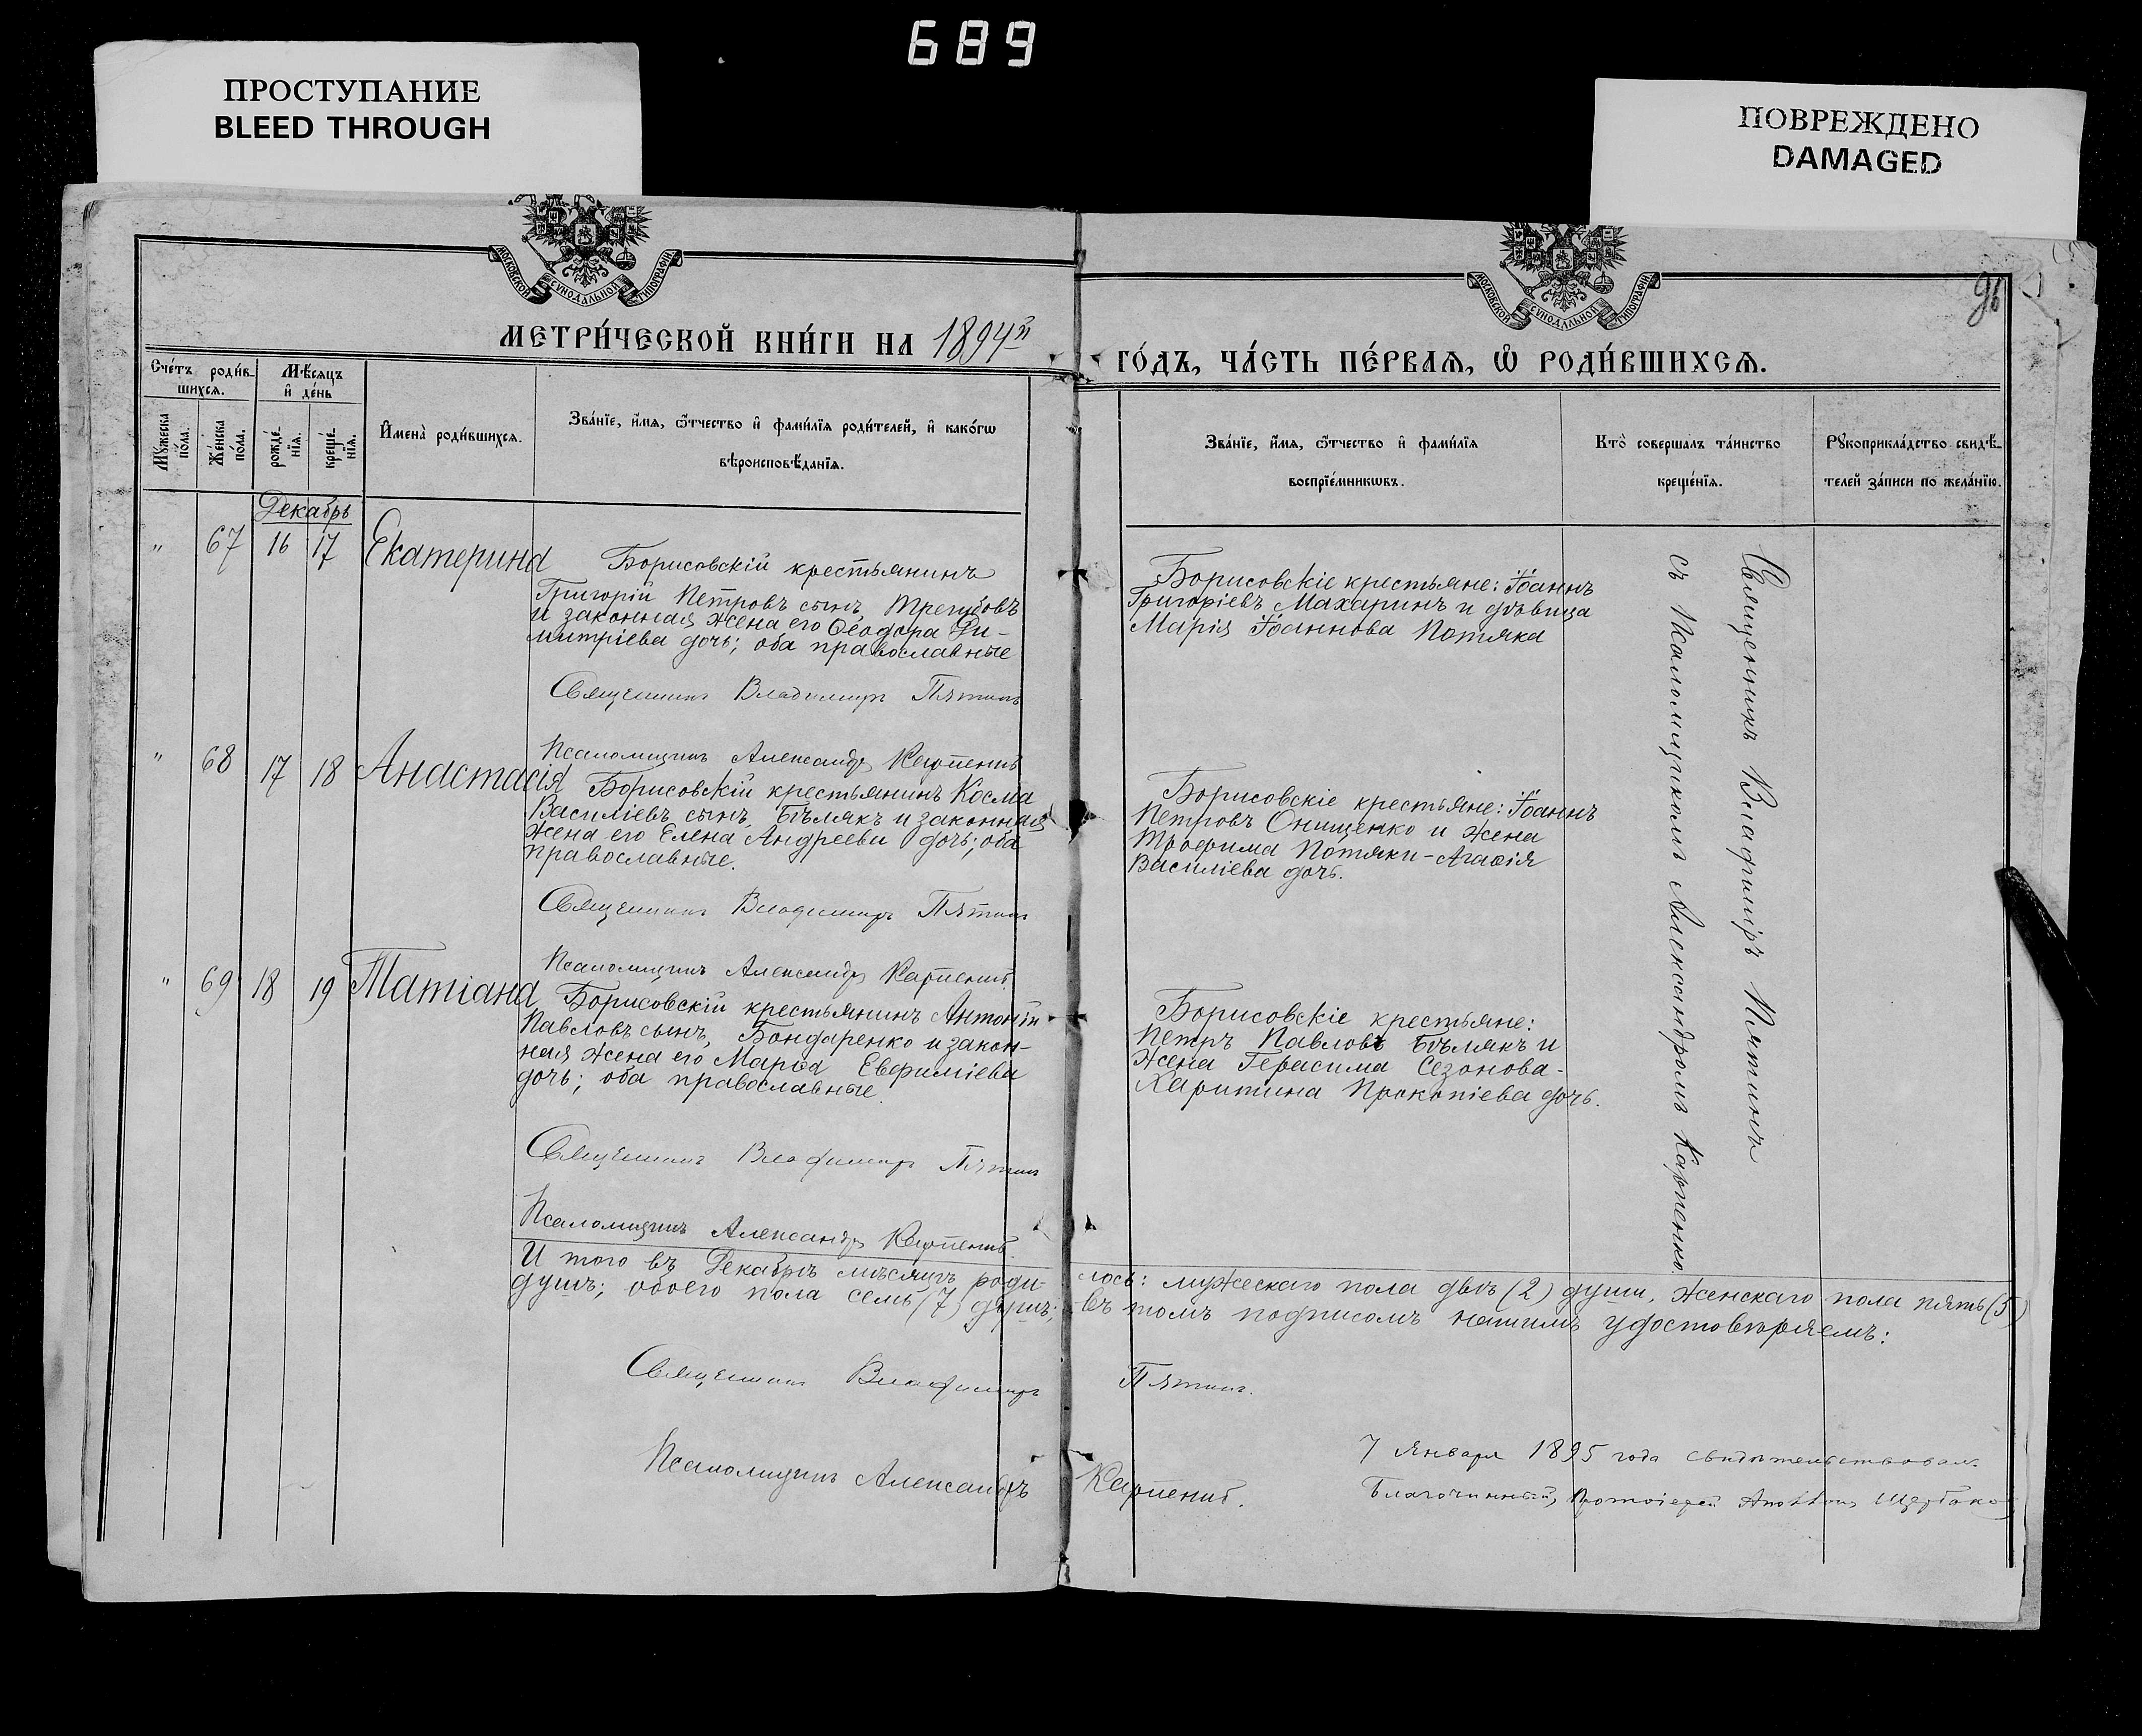 689
ПРОСТУПАНИЕ
BLEED THROUGH
ПОВРЕЖДЕНО
DAMAGED
МОСКОВСКОЙ СѴНОДАЛЬНОЙ ТИПОГРАФІИ
МОСКОВСКОЙ СѴНОДАЛЬНОЙ ТИПОГРАФІИ
96
МЕТРИ́ЧЕСКОЙ КНИ́ГИ НА 1894й
ГО́ДЪ, ЧА́СТЬ ПЕ́РВАѦ, Ѽ РОДИ́ВШИХСѦ.
Сче́тъ роди́в-
шихсѧ.
Мѣ́сѧцъ
и҆ де́нь
Мꙋ́жеска
по́ла.
Же́нска
по́ла.
рожде́-
нїѧ.
креще́-
нїѧ.
И҆мена̀ роди́вшихсѧ.
Зва́нїе, и҆́мѧ, ѻ҆́тчество и҆ фами́лїѧ роди́телей, и҆ како́гѡ
вѣроисповѣ́данїѧ.
Зва́нїе, и҆́мѧ, ѻ҆́тчество и҆ фами́лїѧ
воспрїе́мникѡвъ.
Кто̀ соверша́лъ та́инство
креще́нїѧ.
Рꙋкоприкла́дство свидѣ́-
телей за́писи по жела́нїю.
Декабрь
" 67 16 17 Екатерина
Борисовскій крестьянинъ
Григорій Петровъ сынъ Трегубовъ
и законная жена его Ѳеодора Ди-
митріева дочь; оба православные
Священникъ Владимиръ Пятинъ
Псаломщикъ Александръ Карпенко
Борисовскіе крестьяне: Іоаннъ
Григоріевъ Махаринъ и дѣвица
Марія Іоаннова Потяка
" 68 17 18 Анастасія
Борисовскій крестьянинъ Косма
Василіевъ сынъ, Бѣлякъ и законная
жена его Елена Андреева дочь; оба
православные.
Священникъ Владимиръ Пятинъ
Псаломщикъ Александръ Карпенко
Борисовскіе крестьяне: Іоаннъ
Петровъ Онищенко и жена
Трофима Потяки-Агаѳія
Василіева дочь.
" 69 18 19 Татіана
Борисовскій крестьянинъ Антоній
Павловъ сынъ, Бондаренко и закон-
ная жена его Марѳа Евфиміева
дочь; оба православные.
Священникъ Владимиръ Пятинъ
Псаломщикъ Александръ Карпенко
Борисовскіе крестьяне:
Петръ Павловъ Бѣлякъ и
жена Герасима Сезонова-
Харитина Прокопіева дочь.
Священникъ Владиміръ Пятинъ
съ Псаломщикомъ Александромъ Карпенко.
И того въ Декабрѣ мѣсяцѣ роди-
лось: мужескаго пола двѣ (2) души, женскаго пола пять (5)
душъ; обоего пола семь (7) душъ;
въ томъ подписомъ нашимъ удостовѣряемъ:
Священникъ Владимиръ Пятинъ.
Псаломщикъ Александръ Карпенко.
7 Января 1895 года свидѣтельствовалъ
Благочинный, Протоіерей Щербаковъ